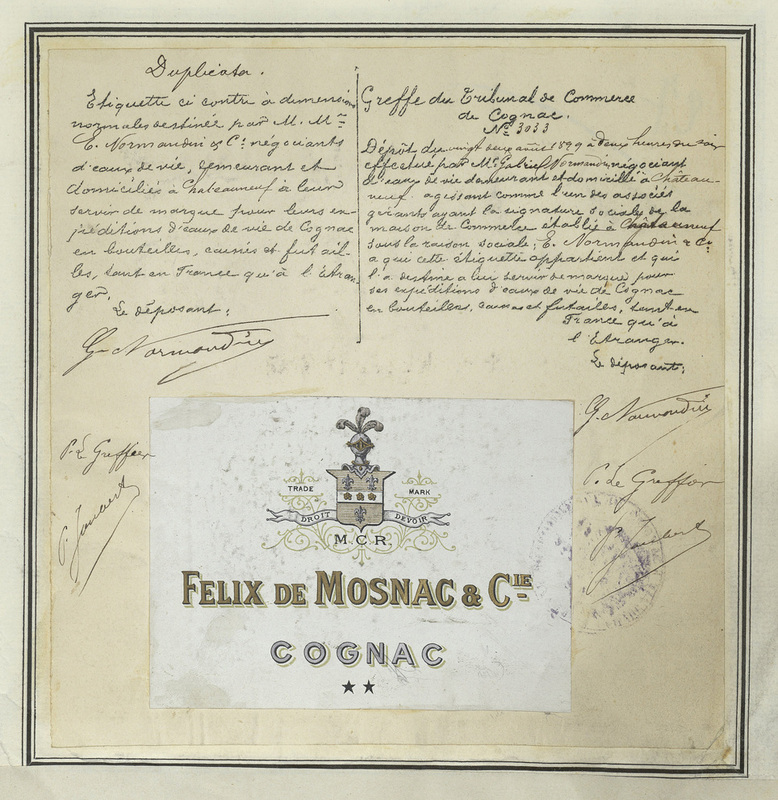 Duplicata.
Etiquette ci contre à dimensions
normales destinée par M. Mrs
E. Normandin & Cie négociants
d'eaux de vie, demeurant et
domiciliés à Chateauneuf à leur
servir de marque pour leurs ex-
péditions d'eaux de vie de Cognac
en bouteilles, caisses et futail-
les, tant en France qu'à l'étran-
ger.
Le déposant:
G. Normandin
P. Le Greffier
P. Jaubert
Greffe du Tribunal de Commerce
de Cognac.
No 3033
Dépôt du vingt deux août 1899 à deux heures du soir
effectué par Mr Normandin négociant
d'eaux de vie demeurant et domicilié à Château-
neuf agissant comme l'un des associés
gérants ayant la signature sociale de la
maison de Commerce établie à Châteauneuf
sous la raison sociale: E. Normandin & Cie
a qui cette étiquette appartient et qui
l'a destine a lui servir de marque pour
ses expéditions d'eaux de vie de Cognac
en bouteilles, caisses et futailles, tant en
France qu'à
l'Etranger.
Le déposant:
G. Normandin
P. Le Greffier
P. Jaubert
TRADE MARK
DROIT DEVOIR
M.C.R.
FELIX DE MOSNAC & CIE
COGNAC
★★